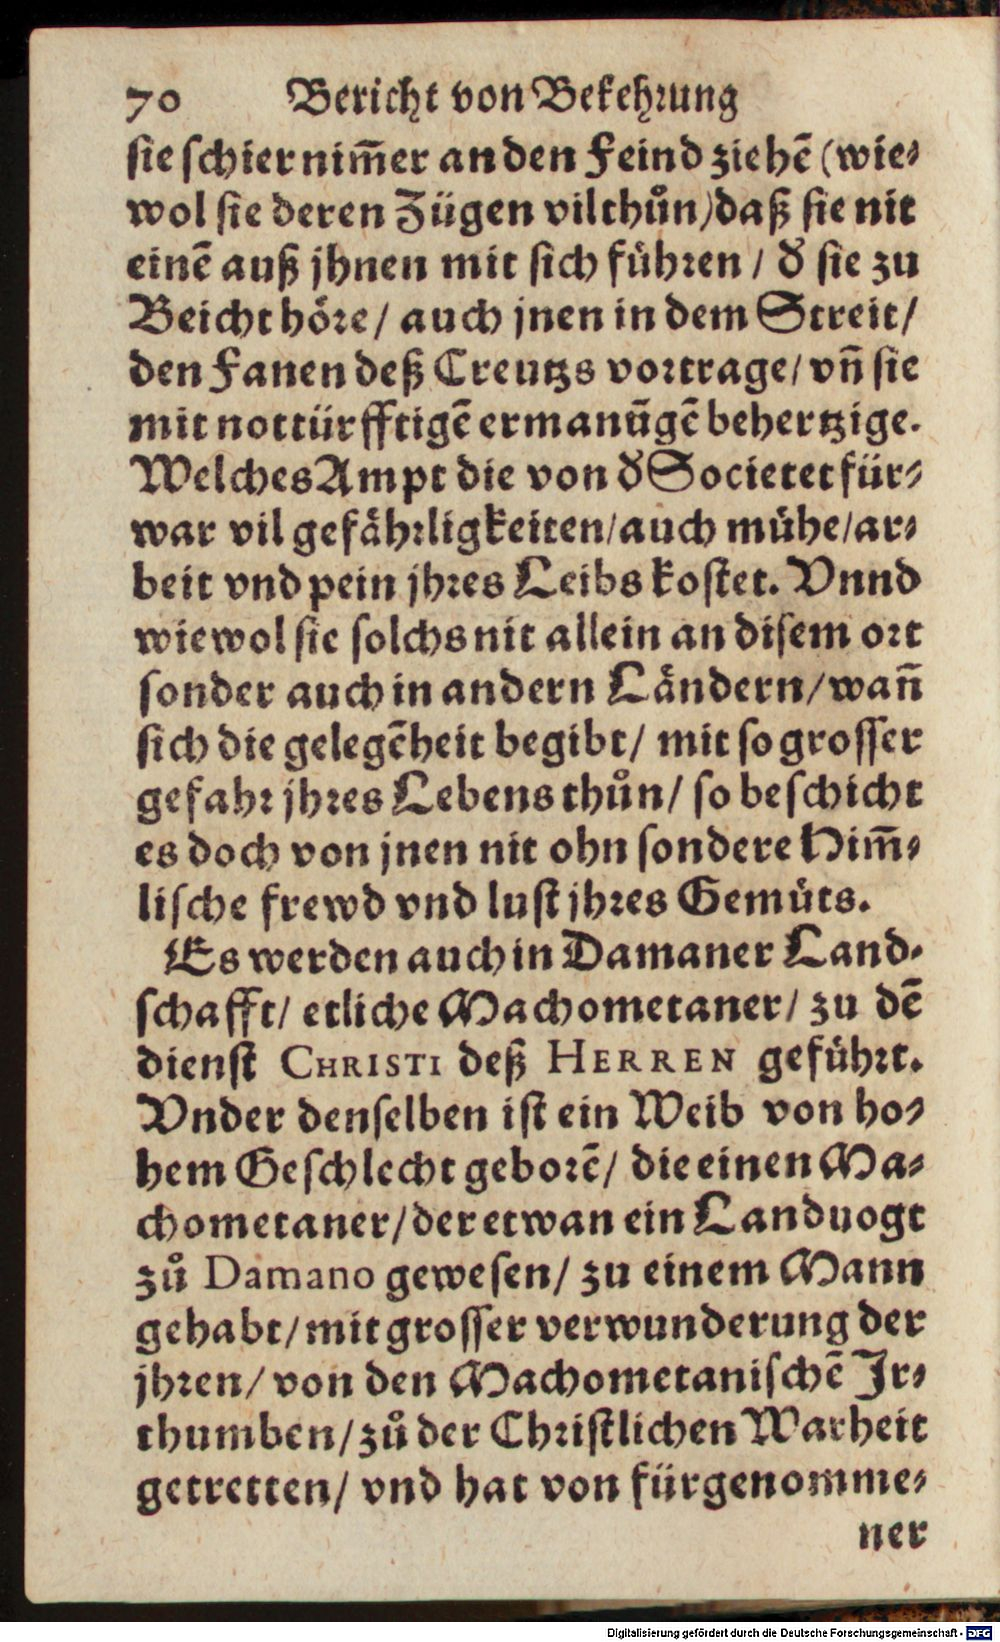 70 Bericht von Bekehrung
sie schier nim̄er an den Feind ziehē (wie⸗
wol sie deren Zügen vil thůn) daß sie nit
einē auß jhnen mit sich führen / d̄ sie zu
Beicht höre / auch jnen in dem Streit /
den Fanen deß Creutzs vortrage / vn̄ sie
mit nottürfftigē ermanūgē behertzige.
Welches Ampt die von d̄ Societet für⸗
war vil gefährligkeiten / auch mühe / ar⸗
beit vnd pein jhres Leibs kostet. Vnnd
wiewol sie solchs nit allein an disem ort
sonder auch in andern Ländern / wan̄
sich die gelegēheit begibt / mit so grosser
gefahr jhres Lebens thůn / so beschicht
es doch von jnen nit ohn sondere Him̄⸗
lische frewd vnd lust jhres Gemüts.
Es werden auch in Damaner Land⸗
schafft / etliche Machometaner / zu dē
dienst CHRISTI deß HERREN geführt.
Vnder denselben ist ein Weib von ho⸗
hem Geschlecht geborē / die einen Ma⸗
chometaner / der etwan ein Landuogt
zů Damano gewesen / zu einem Mann
gehabt / mit grosser verwunderung der
jhren / von den Machometanischē Ir⸗
thumben / zů der Christlichen Warheit
getretten / vnd hat von fürgenomme⸗
ner
Digitalisierung gefördert durch die Deutsche Forschungsgemeinschaft - DFG